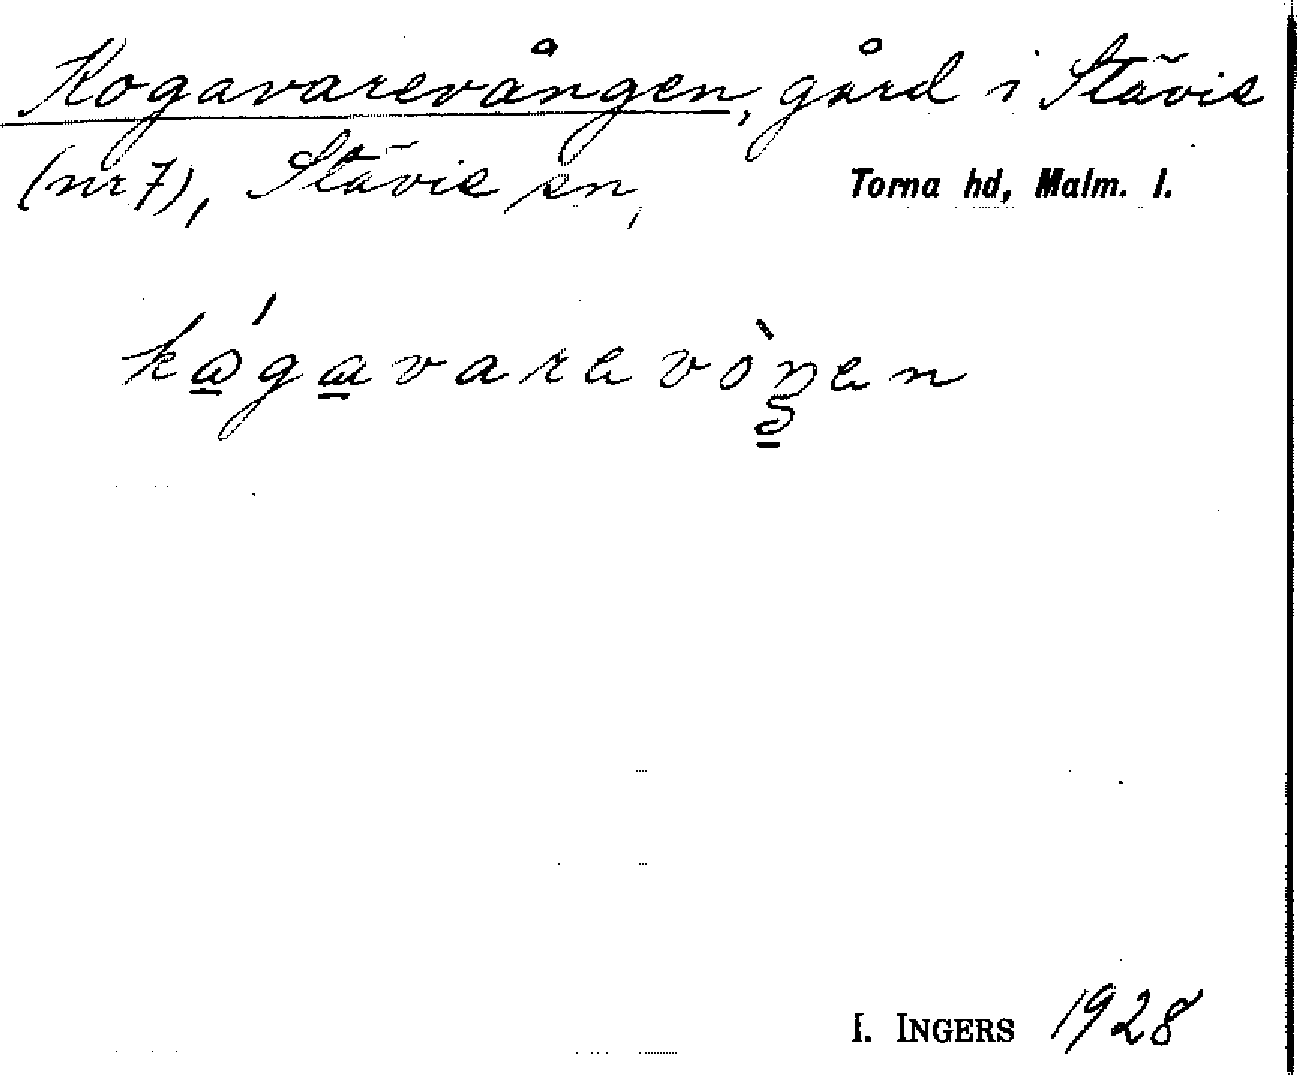 Kogavarevången, gård i Stävie
(nr 7), Stävie sn, Torna hd, Malm. l.
kǫ́gavarevòŋen
I. INGERS 1928